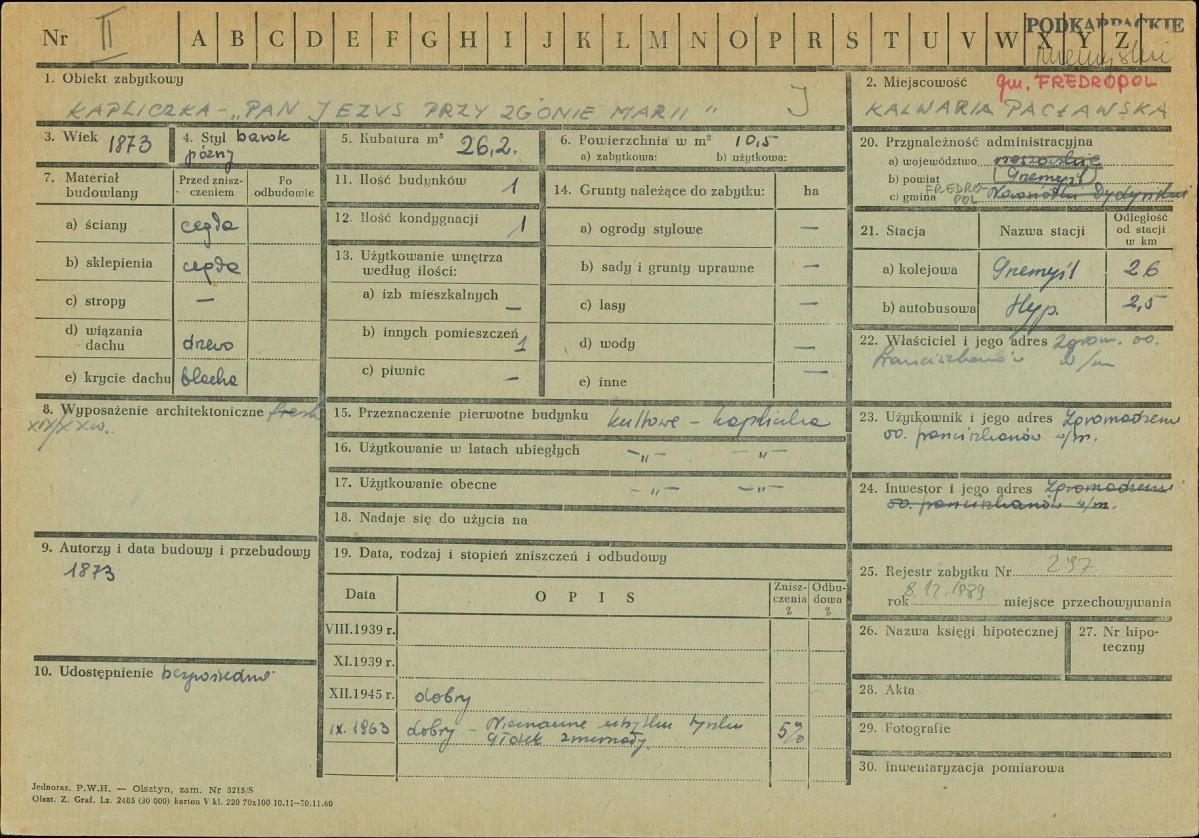 Nr II A B C D E F G H I J K L M N O P R S T U V W X Y Z
PODKARPACKIE
1. Obiekt zabytkowy
KAPLICZKA - „PAN JEZUS PRZY ZGONIE MARII" J
2. Miejscowość gm. FREDROPOL
KALWARIA PACŁAWSKA
3. Wiek 1873
4. Styl barok
późny
5. Kubatura m³ 26,2.
6. Powierzchnia w m² 10,5
a) zabytkowa: b) użytkowa:
7. Materiał
budowlany
Przed znisz-
czeniem
Po
odbudowie
a) ściany cegła
b) sklepienia cegła
c) stropy —
d) wiązania
dachu drewo
e) krycie dachu blacha
8. Wyposażenie architektoniczne fresk
XIX/XX w.
9. Autorzy i data budowy i przebudowy
1873
10. Udostępnienie bezpośrednie
11. Ilość budynków 1
12. Ilość kondygnacji 1
13. Użytkowanie wnętrza
według ilości:
a) izb mieszkalnych —
b) innych pomieszczeń 1
c) piwnic —
14. Grunty należące do zabytku: ha
a) ogrody stylowe —
b) sady i grunty uprawne —
c) lasy —
d) wody —
e) inne —
15. Przeznaczenie pierwotne budynku kultowe - kapliczka
16. Użytkowanie w latach ubiegłych -„- -„-
17. Użytkowanie obecne -„- -„-
18. Nadaje się do użycia na
19. Data, rodzaj i stopień zniszczeń i odbudowy
Data OPIS Znisz-
czenia
%
Odbu-
dowa
%
VIII.1939 r.
XI.1939 r.
XII.1945 r. dobry
IX. 1963 dobry - Nieznaczne ubytki tynku 5%
20. Przynależność administracyjna
a) województwo rzeszowskie
b) powiat Przemyśl
c) gmina FREDRO-
POL
21. Stacja Nazwa stacji Odległość
od stacji
w km
a) kolejowa Przemyśl 26
b) autobusowa 2,5
22. Właściciel i jego adres Zgrom. oo.
Franciszkanów w/m
23. Użytkownik i jego adres Zgromadzenie
oo. franciszkanów w/m.
24. Inwestor i jego adres Zgromadzenie
oo. franciszkanów w/m.
25. Rejestr zabytku Nr 297
rok 8.12.1989 miejsce przechowywania
26. Nazwa księgi hipotecznej
27. Nr hipo-
teczny
28. Akta
29. Fotografie
30. Inwentaryzacja pomiarowa
Jednoraz. P.W.H. — Olsztyn, zam. Nr 3215/S
Olszt. Z. Graf. Lz. 2485 (30 000) karton V kl. 220 70x100 10.11—30.11.60